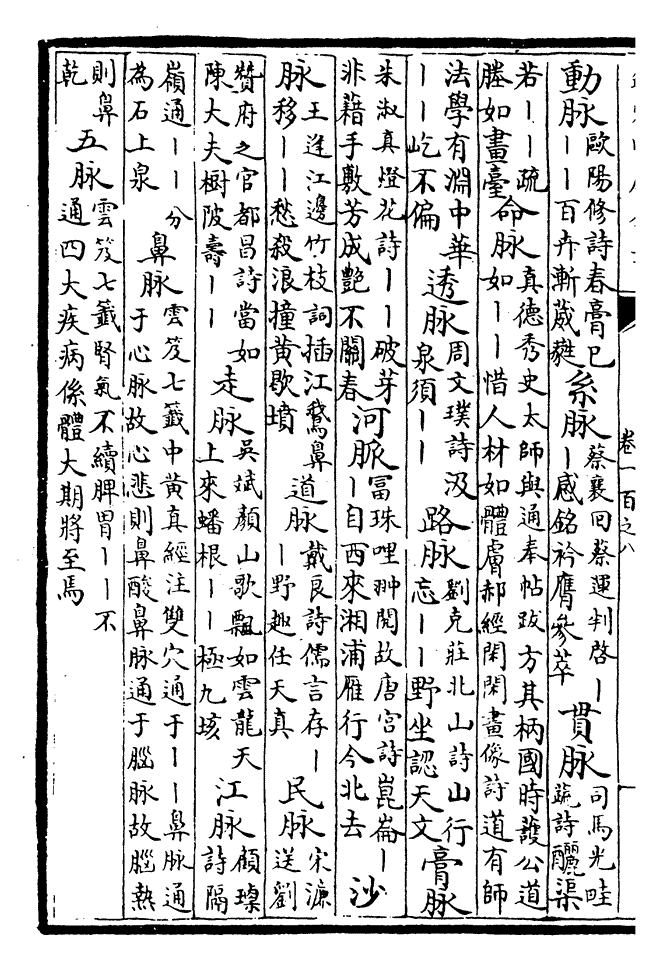 動脉歐陽修詩春膏已
——百卉漸葳蕤
系脉蔡襄回蔡運判啓—
—感銘衿膺參萃
貫脉司馬光畦
蔬詩釃渠
若——疏
塍如畫臺
命脉真德秀史太師與通奉帖跋方其柄國時護公道
如——惜人材如體膚郝經閑閑畫像詩道有師
法學有淵中華
——屹不偏
透脉周文璞詩汲
泉須——
路脉劉克莊北山詩山行
忘——野坐認天文
膏脉
朱淑真燈花詩——破芽
非藉手敷芳成艷不關春
河脈冨珠哩翀閱故唐宫詩崑崙—
—自西來湘浦雁行今北去
沙
脉王逢江邊竹枝詞插江鵞鼻
移——愁殺浪撞黄歇墳
道脉戴良詩儒言存—
—野趣任天真
民脉宋濂
送劉
贊府之官都昌詩當如
陳大夫樹陂壽——
走脉吳斌顏山歌飄如雲龍天
上來蟠根——極九垓
江脉顧璨
詩隔
嶺通——分
為石上泉
鼻脉雲笈七籤中黄真經注雙穴通于——鼻脉通
于心脉故心悲則鼻酸鼻脉通于腦脉故腦熱
則鼻
乾
五脉雲笈七籤腎氣不續脾胃——不
通四大疾病係體大期將至焉
卷一百之八